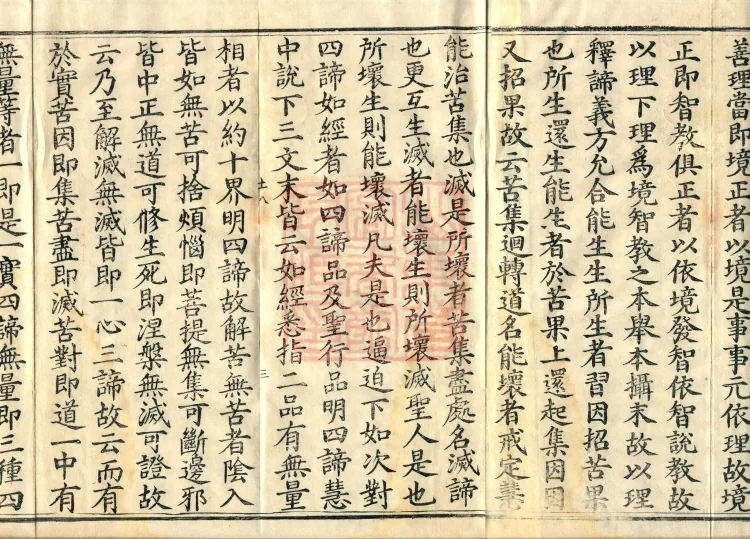 善理當即境正者以境是事事元依理故境
正即智教俱正者以依境發智依智說教故
以理下理為境智教之本舉本攝末故以理
釋諦義方允合能生生所生者習因招苦果
也所生還生能生者於苦果上還起集因因
又招果故云苦集迴轉道名能壞者戒定慧
能治苦集也滅是所壞者苦集盡處名滅諦
也更互生滅者能壞生則所壞滅聖人是也
所壞生則能壞滅凡夫是也逼迫下如次對
四諦如經者如四諦品及聖行品明四諦慧
中說下三文末皆云如經悉指二品有無量
相者以約十界明四諦故解苦無苦者陰入
皆如無苦可捨煩惱即菩提無集可斷邊邪
皆中正無道可修生死即涅槃無滅可證故
云乃至解滅無滅皆即一心三諦故云而有
於實苦因即集苦盡即滅苦對即道一中有
無量等者一即是一實四諦無量即三種四